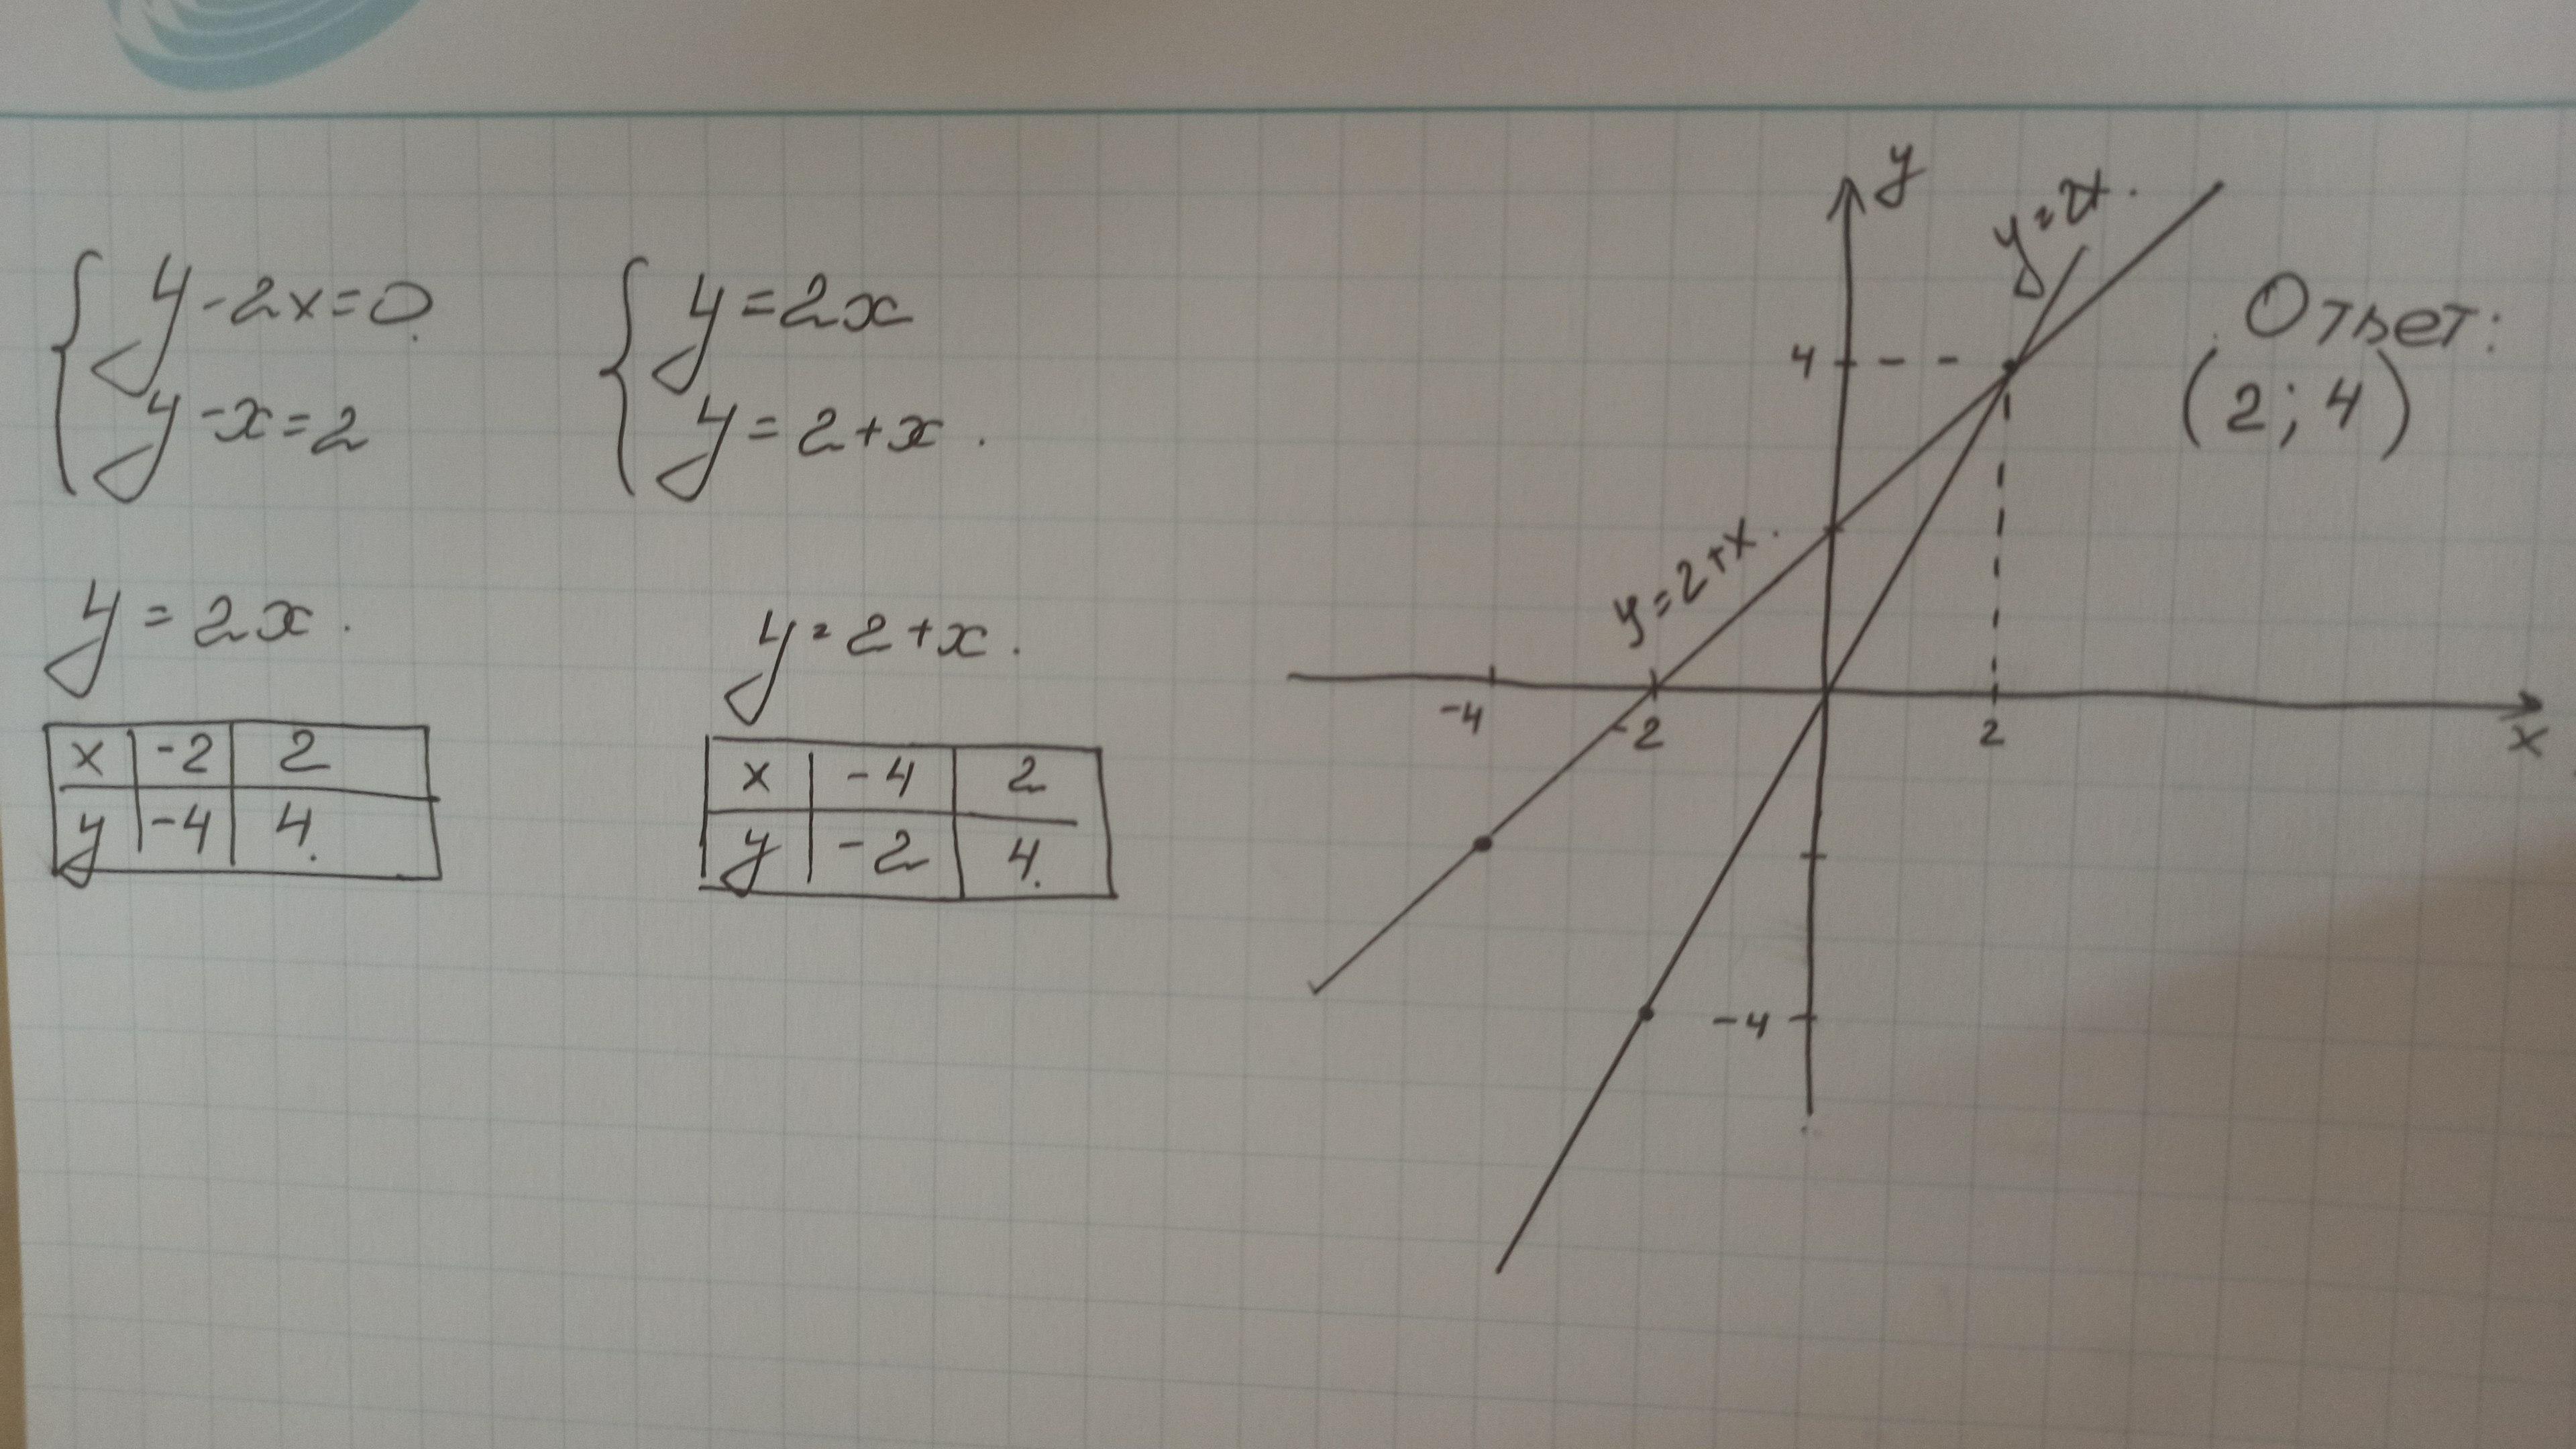 y-2x=0
y-x=2
y=2x
y=2+x.
y=2x.
x -2 2
y -4 4.
y=2+x.
x -4 2
y -2 4.
y
y=2x.
4
y=2+x.
-4 -2 2
x
-4
Ответ:
(2; 4)